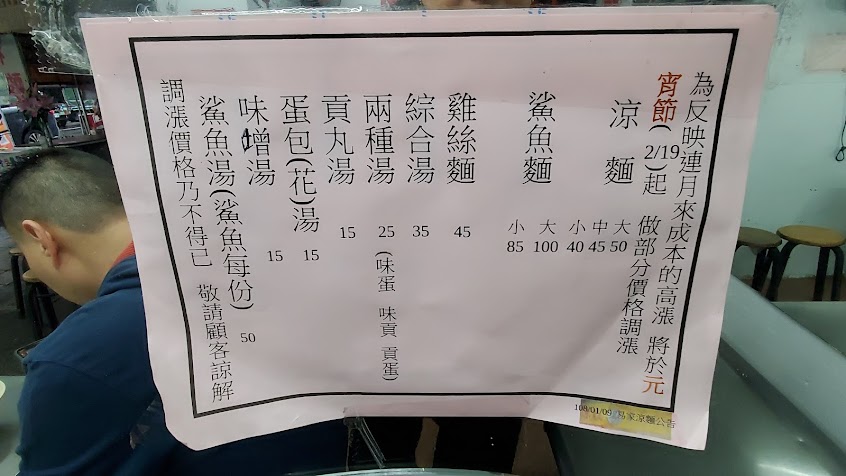 為反映連月來成本的高漲 將於元
宵節(2/19)起 做部分價格調漲
涼麵 大50 中45 小40
鯊魚麵 大100 小85
雞絲麵 45
綜合湯 35
兩種湯 25 (味蛋 味貢 貢蛋)
貢丸湯 15
蛋包(花)湯 15
味增湯 15
鯊魚湯(鯊魚每份) 50
調漲價格乃不得已 敬請顧客諒解
108/01/09 易家涼麵公告